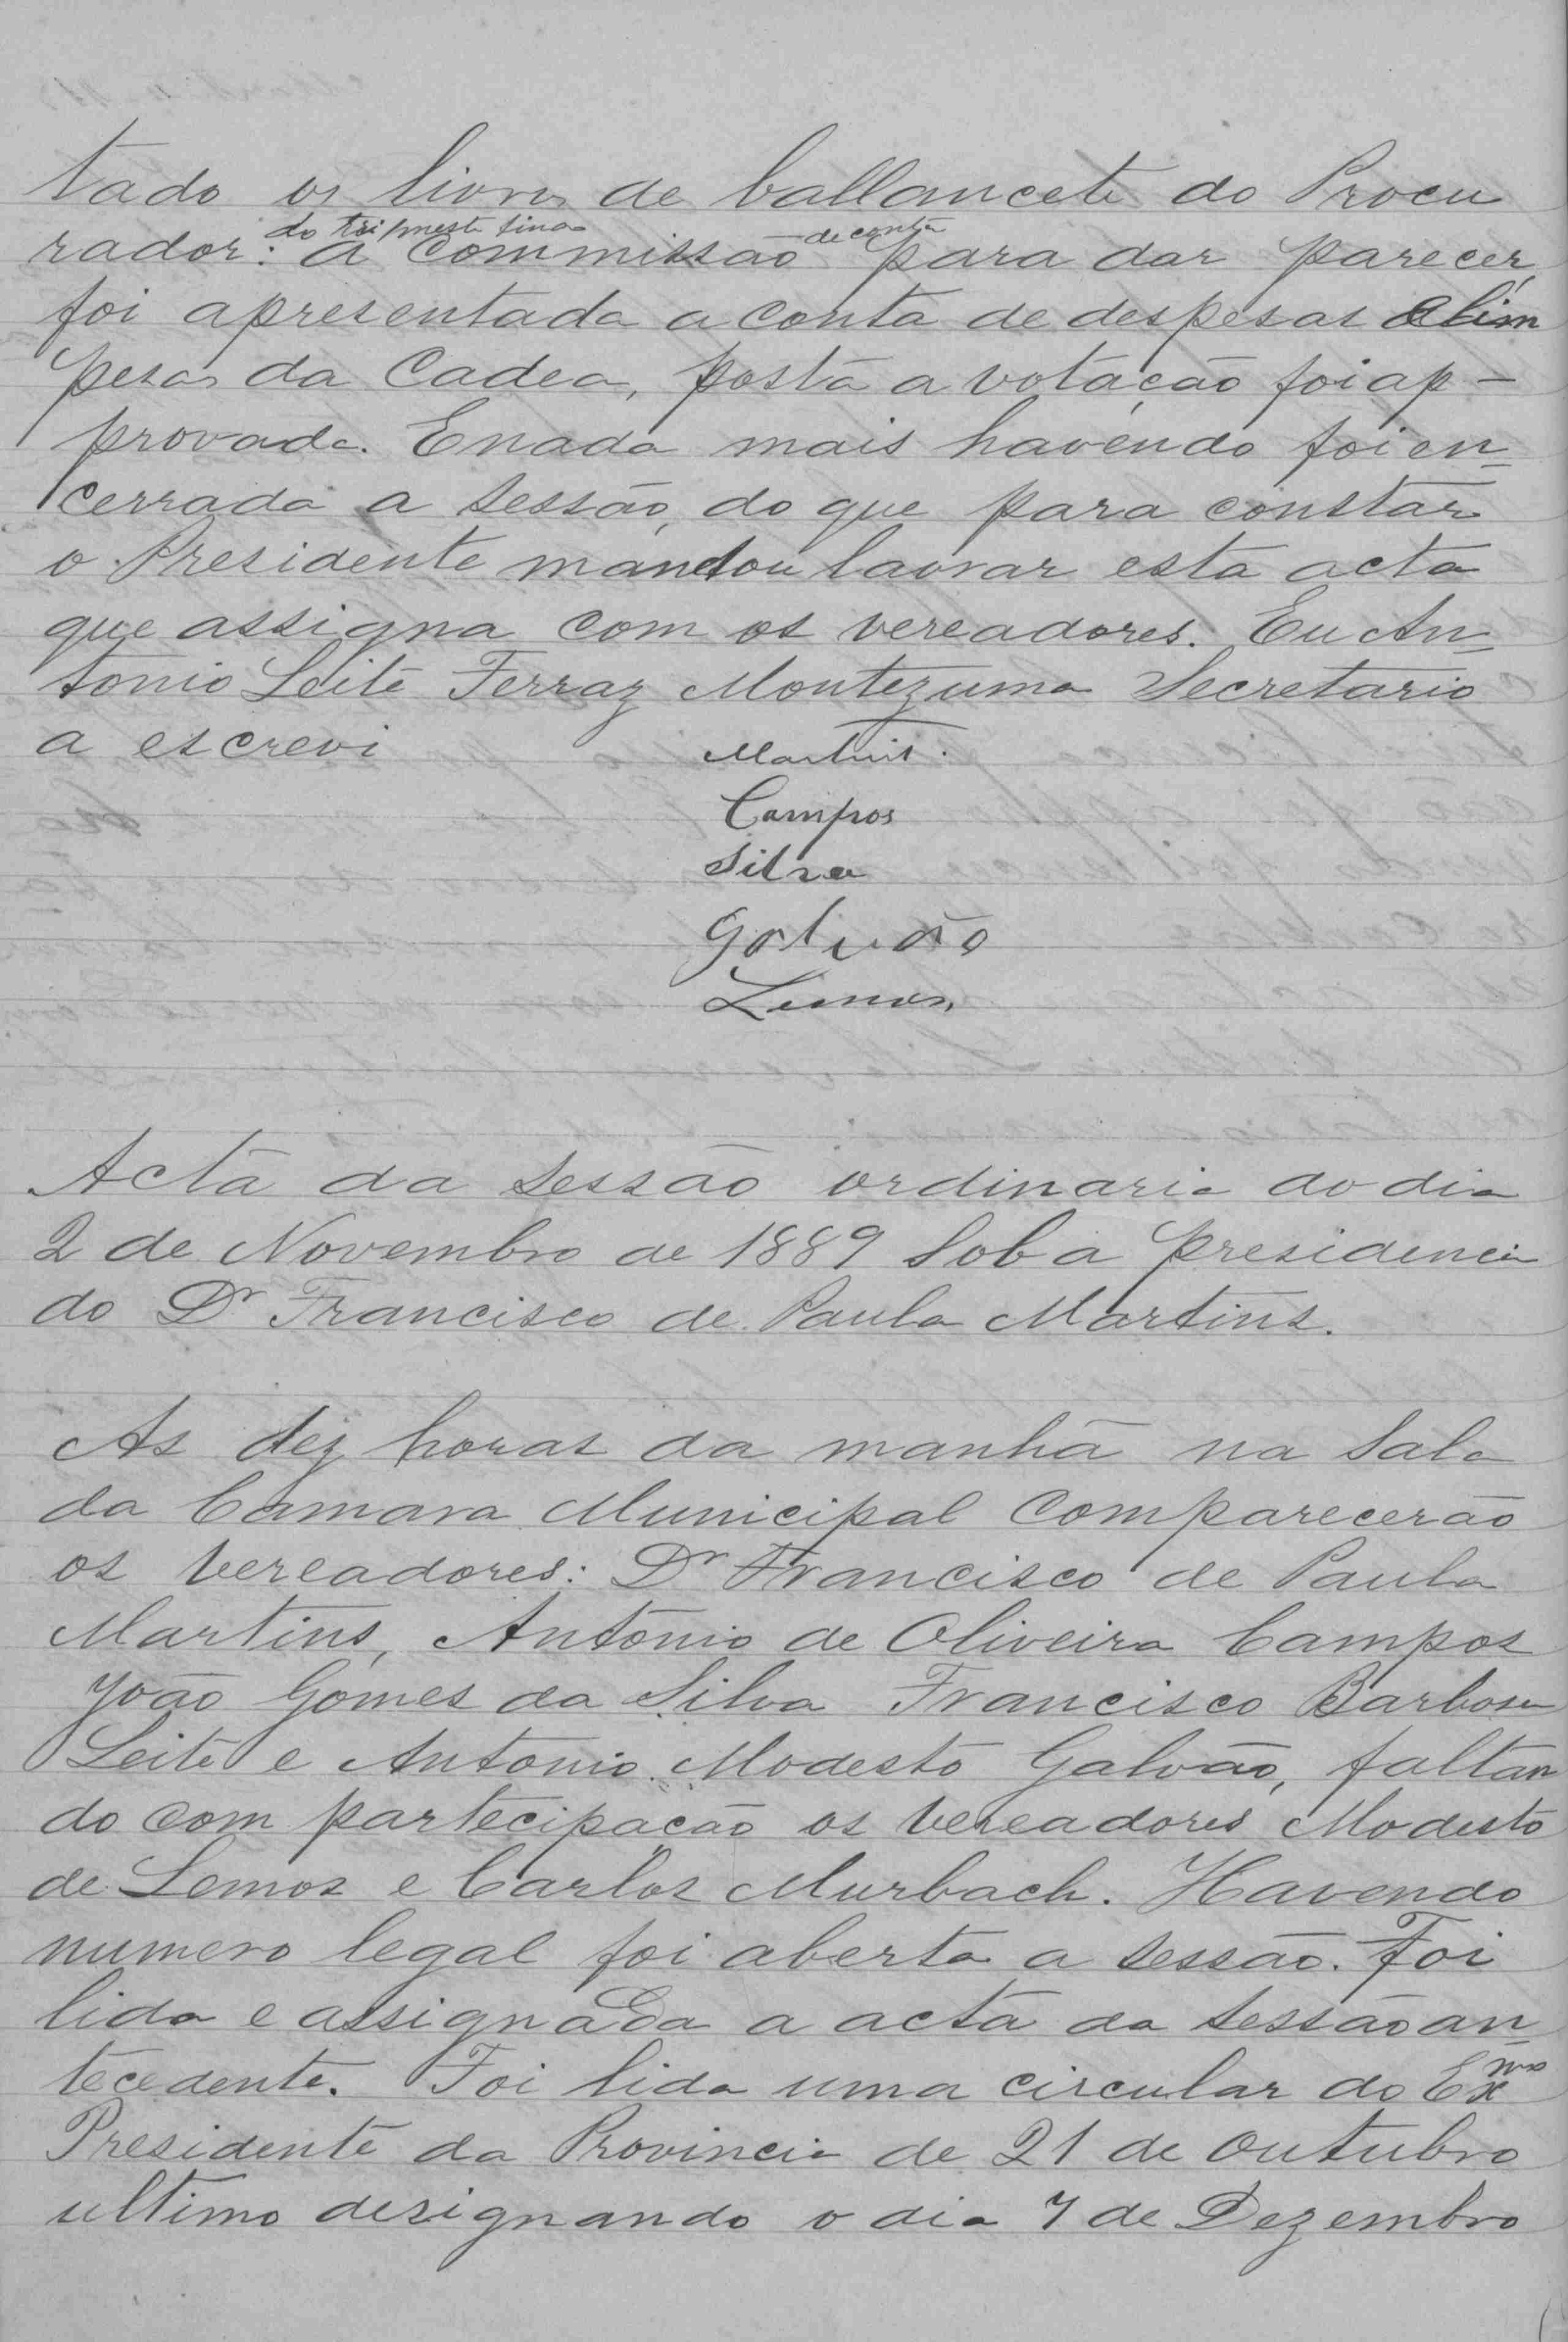 tado os livros de ballancete do Procu
do trimestre findo de conta
rador: a Commissão para dar parecer,
foi apresentada a conta de despesas e lim
pesas da Cadea, posta a votação foi ap-
provada. E nada mais havendo foi en=
cerrada a sessão, do que para constar
o Presidente mandou lavrar esta acta
que assigna com os vereadores. Eu An=
tonio Leite Ferraz Montezuma Secretario
a escrevi
Martins.
Campos
Silva
Galvão
Lemos,
Acta da sessão ordinaria do dia
2 de Novembro de 1889 sob a presidencia
do Dr Francisco de Paula Martins.
As dez horas da manhã na sala
da Camara Municipal comparecerão
os vereadores: Dr Francisco de Paula
Martins, Antonio de Oliveira Campos
João Gomes da Silva Francisco Barbosa
Leite e Antonio Modesto Galvão, faltan
do com partecipação os vereadores Modesto
de Lemos e Carlos Murbach. Havendo
numero legal foi aberta a sessão. Foi
lida e assignada a acta da sessão an=
tecedente. Foi lida uma circular do Exmo
Presidente da Provincia de 21 de Outubro
ultimo designando o dia 7 de Dezembro